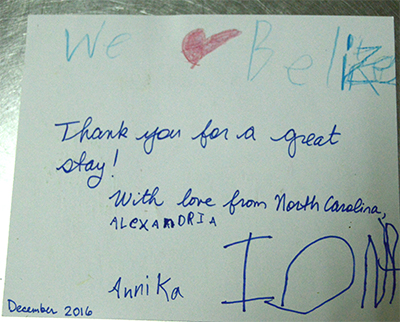 We ❤ Belize
Thank you for a great
stay!
With love from North Carolina,
ALEXANDRIA
Annika
ION
December 2016